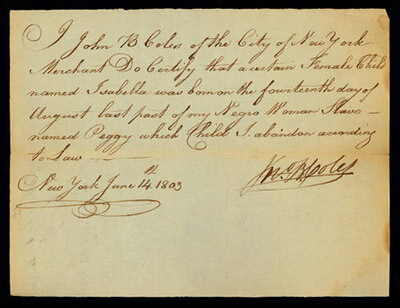 I John B Coles of the City of New York
Merchant Do Certify that a certain Female Child
named Isabella was born on the fourteenth day of
August last past of my Negro Woman Slave
named Peggy which Child I abandon according
to Law
New York June 14th 1803
Jno. B Coles